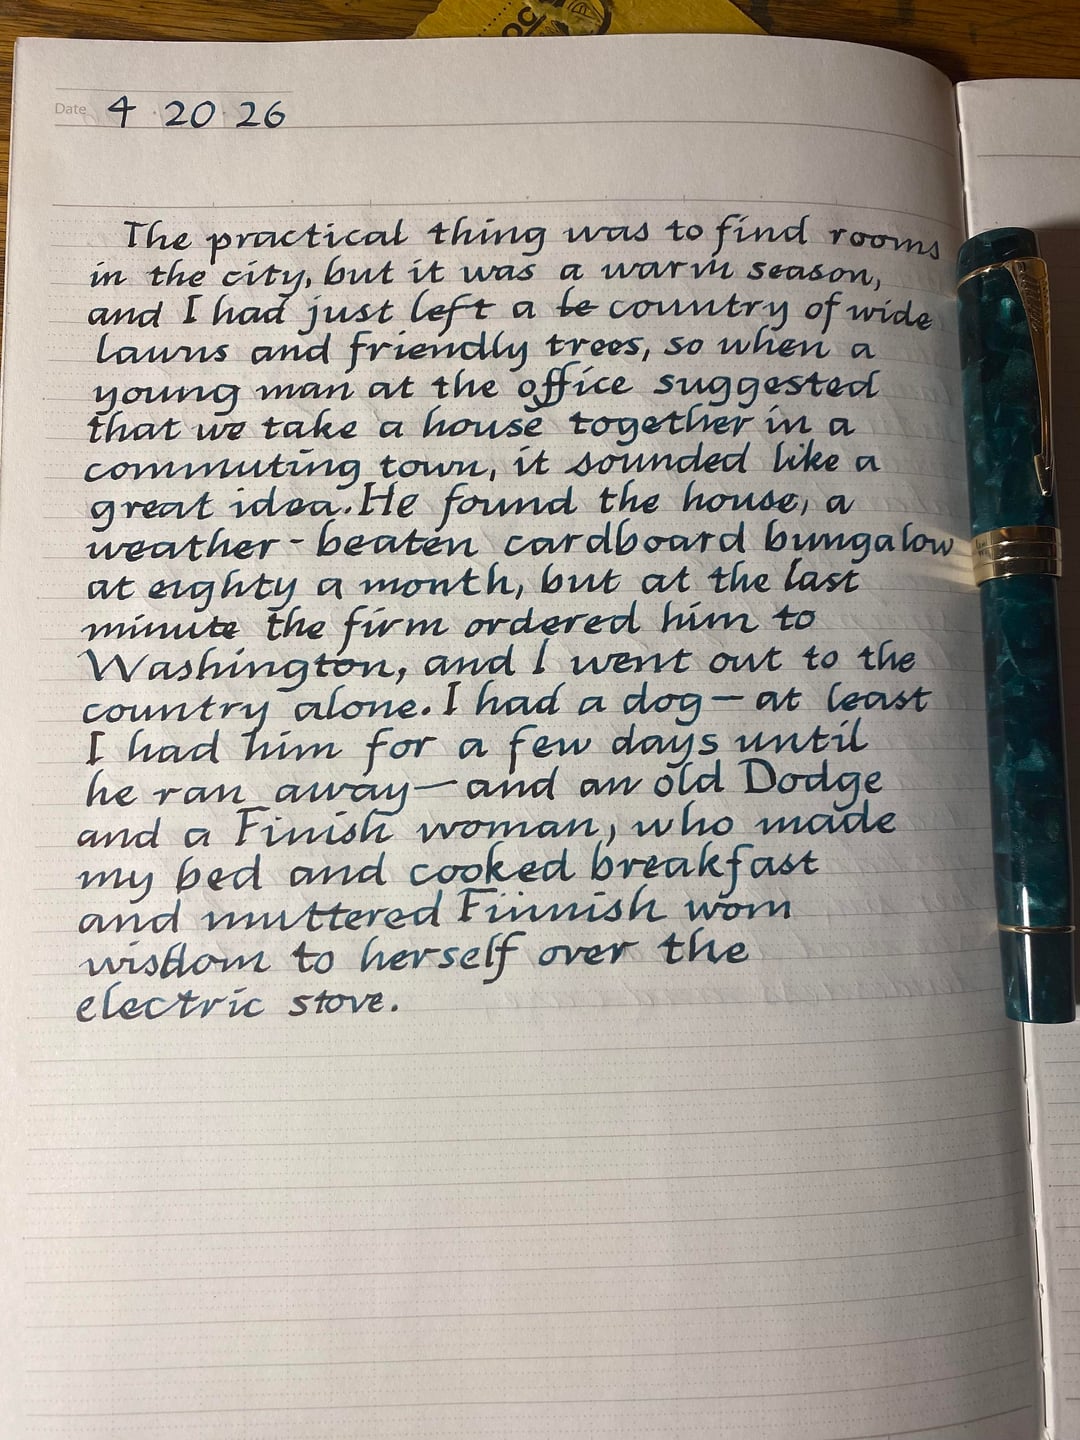 Date 4 20 26
The practical thing was to find rooms
in the city, but it was a warm season,
and I had just left a le country of wide
lawns and friendly trees, so when a
young man at the office suggested
that we take a house together in a
commuting town, it sounded like a
great idea. He found the house, a
weather-beaten cardboard bungalow
at eighty a month, but at the last
minute the firm ordered him to
Washington, and I went out to the
country alone. I had a dog—at least
I had him for a few days until
he ran away—and an old Dodge
and a Finish woman, who made
my bed and cooked breakfast
and muttered Finnish wom
wisdom to herself over the
electric stove.